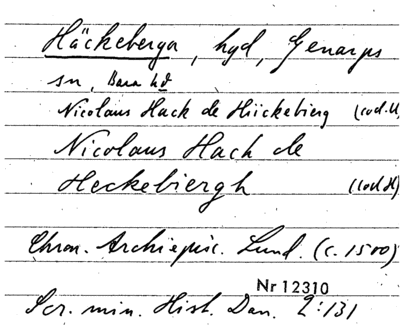 Häckeberga, hgd, Genarps
sn, Bara hd
Nicolaus Hack de Hickebierg (cod. U
Nicolaus Hack de
Heckebiergh (cod. H)
Chron. Archiepisc. Lund. (c. 1500)
Nr 12310
Scr. min. Hist. Dan. 2:131